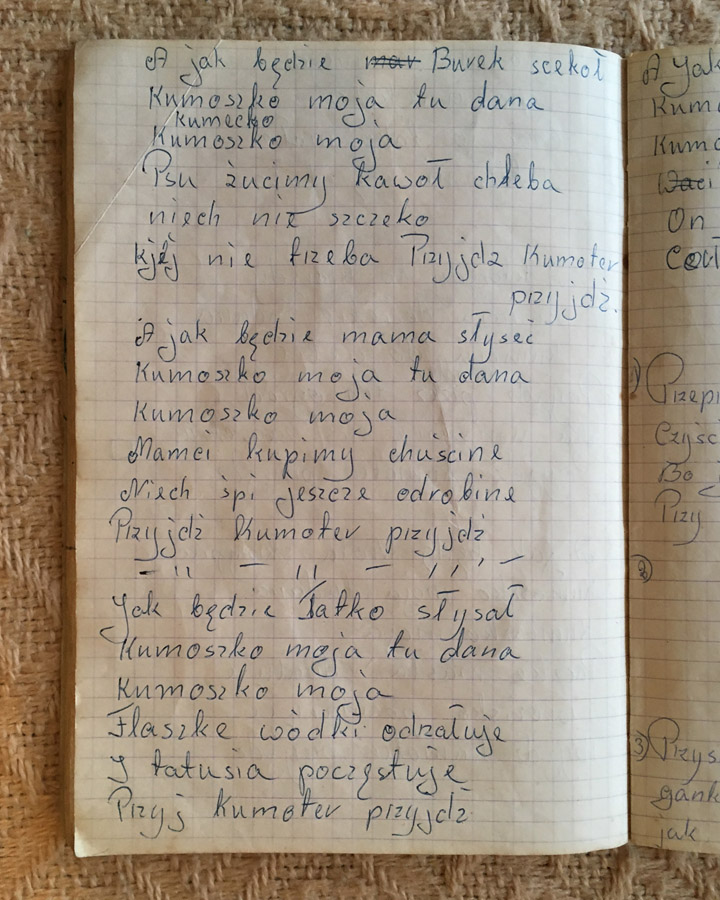 A jak będzie Burek scekoł
Kumoszko moja tu dana
kumecko
Kumoszko moja
Psu żucimy kawoł chłeba
niech nie szczeko
kjej nie trzeba Przyjdz Kumoter
przyjdż.
A jak będzie mama słyseć
Kumoszko moja tu dana
Kumoszko moja
Mamci kupimy chuścine
Niech śpi jeszcze odrobine
Przyjdż Kumoter przyjdż
— '' — '' — '' ' —
Jak będzie Tatko słysoł
Kumoszko moja tu dana
Kumoszko moja
Flaszke wòdki odrzałuje
I tatusia poczęstuje
Przyj Kumoter przyjdż
A Jak
Kum
Kumo
On
1)
Przepi
Czyśc
Bo
Przy
2
3) Przys
gank
jak